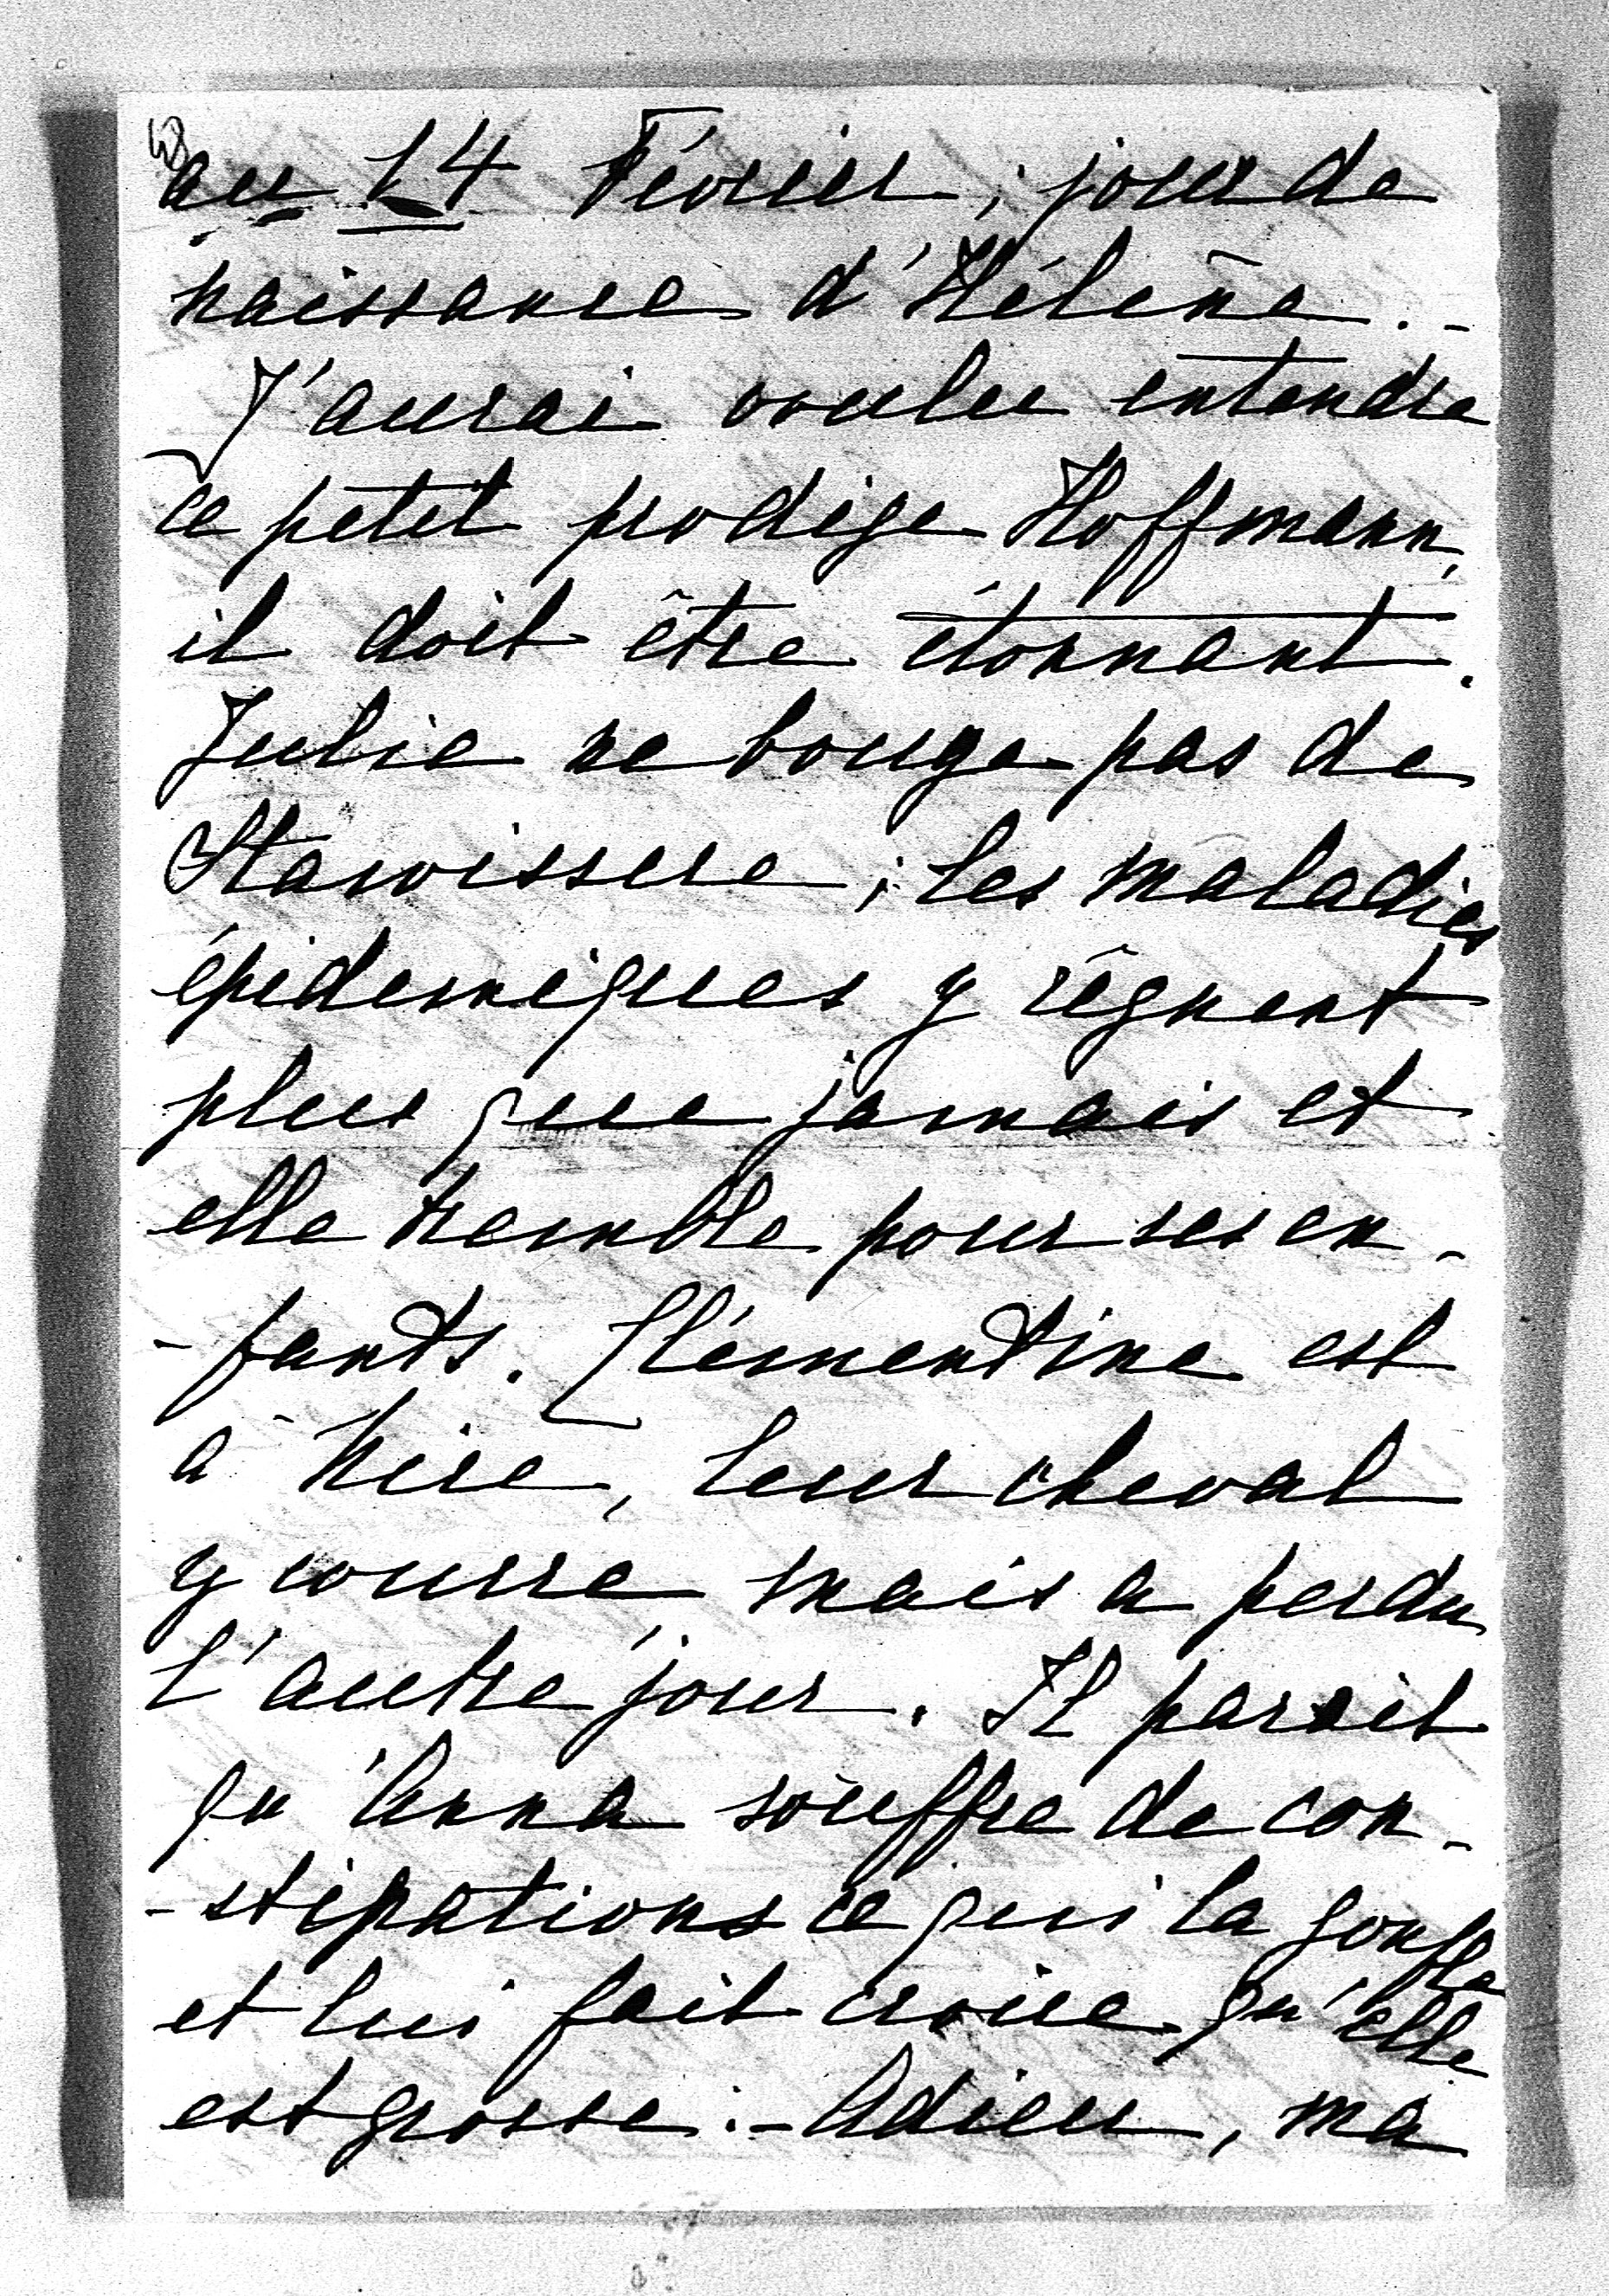 48
au 14 Février, jour de
naissance d'Hélène. -
J'aurai voulu entendre
ce petit prodige Hoffmann,
il doit être étonnant.
Julie ne bouge pas de
Stawissere; les maladies
épidemiques y règnent
plus que jamais et
elle tremble pour ses en-
-fants. Clémentine est
à Nice, leur cheval
y courre mais a perdu
l'autre jour. Il parait
qu'Anna souffre de con-
-stipations ce qui la gonfle
et lui fait croire qu'elle
est grosse. - Adieu, ma